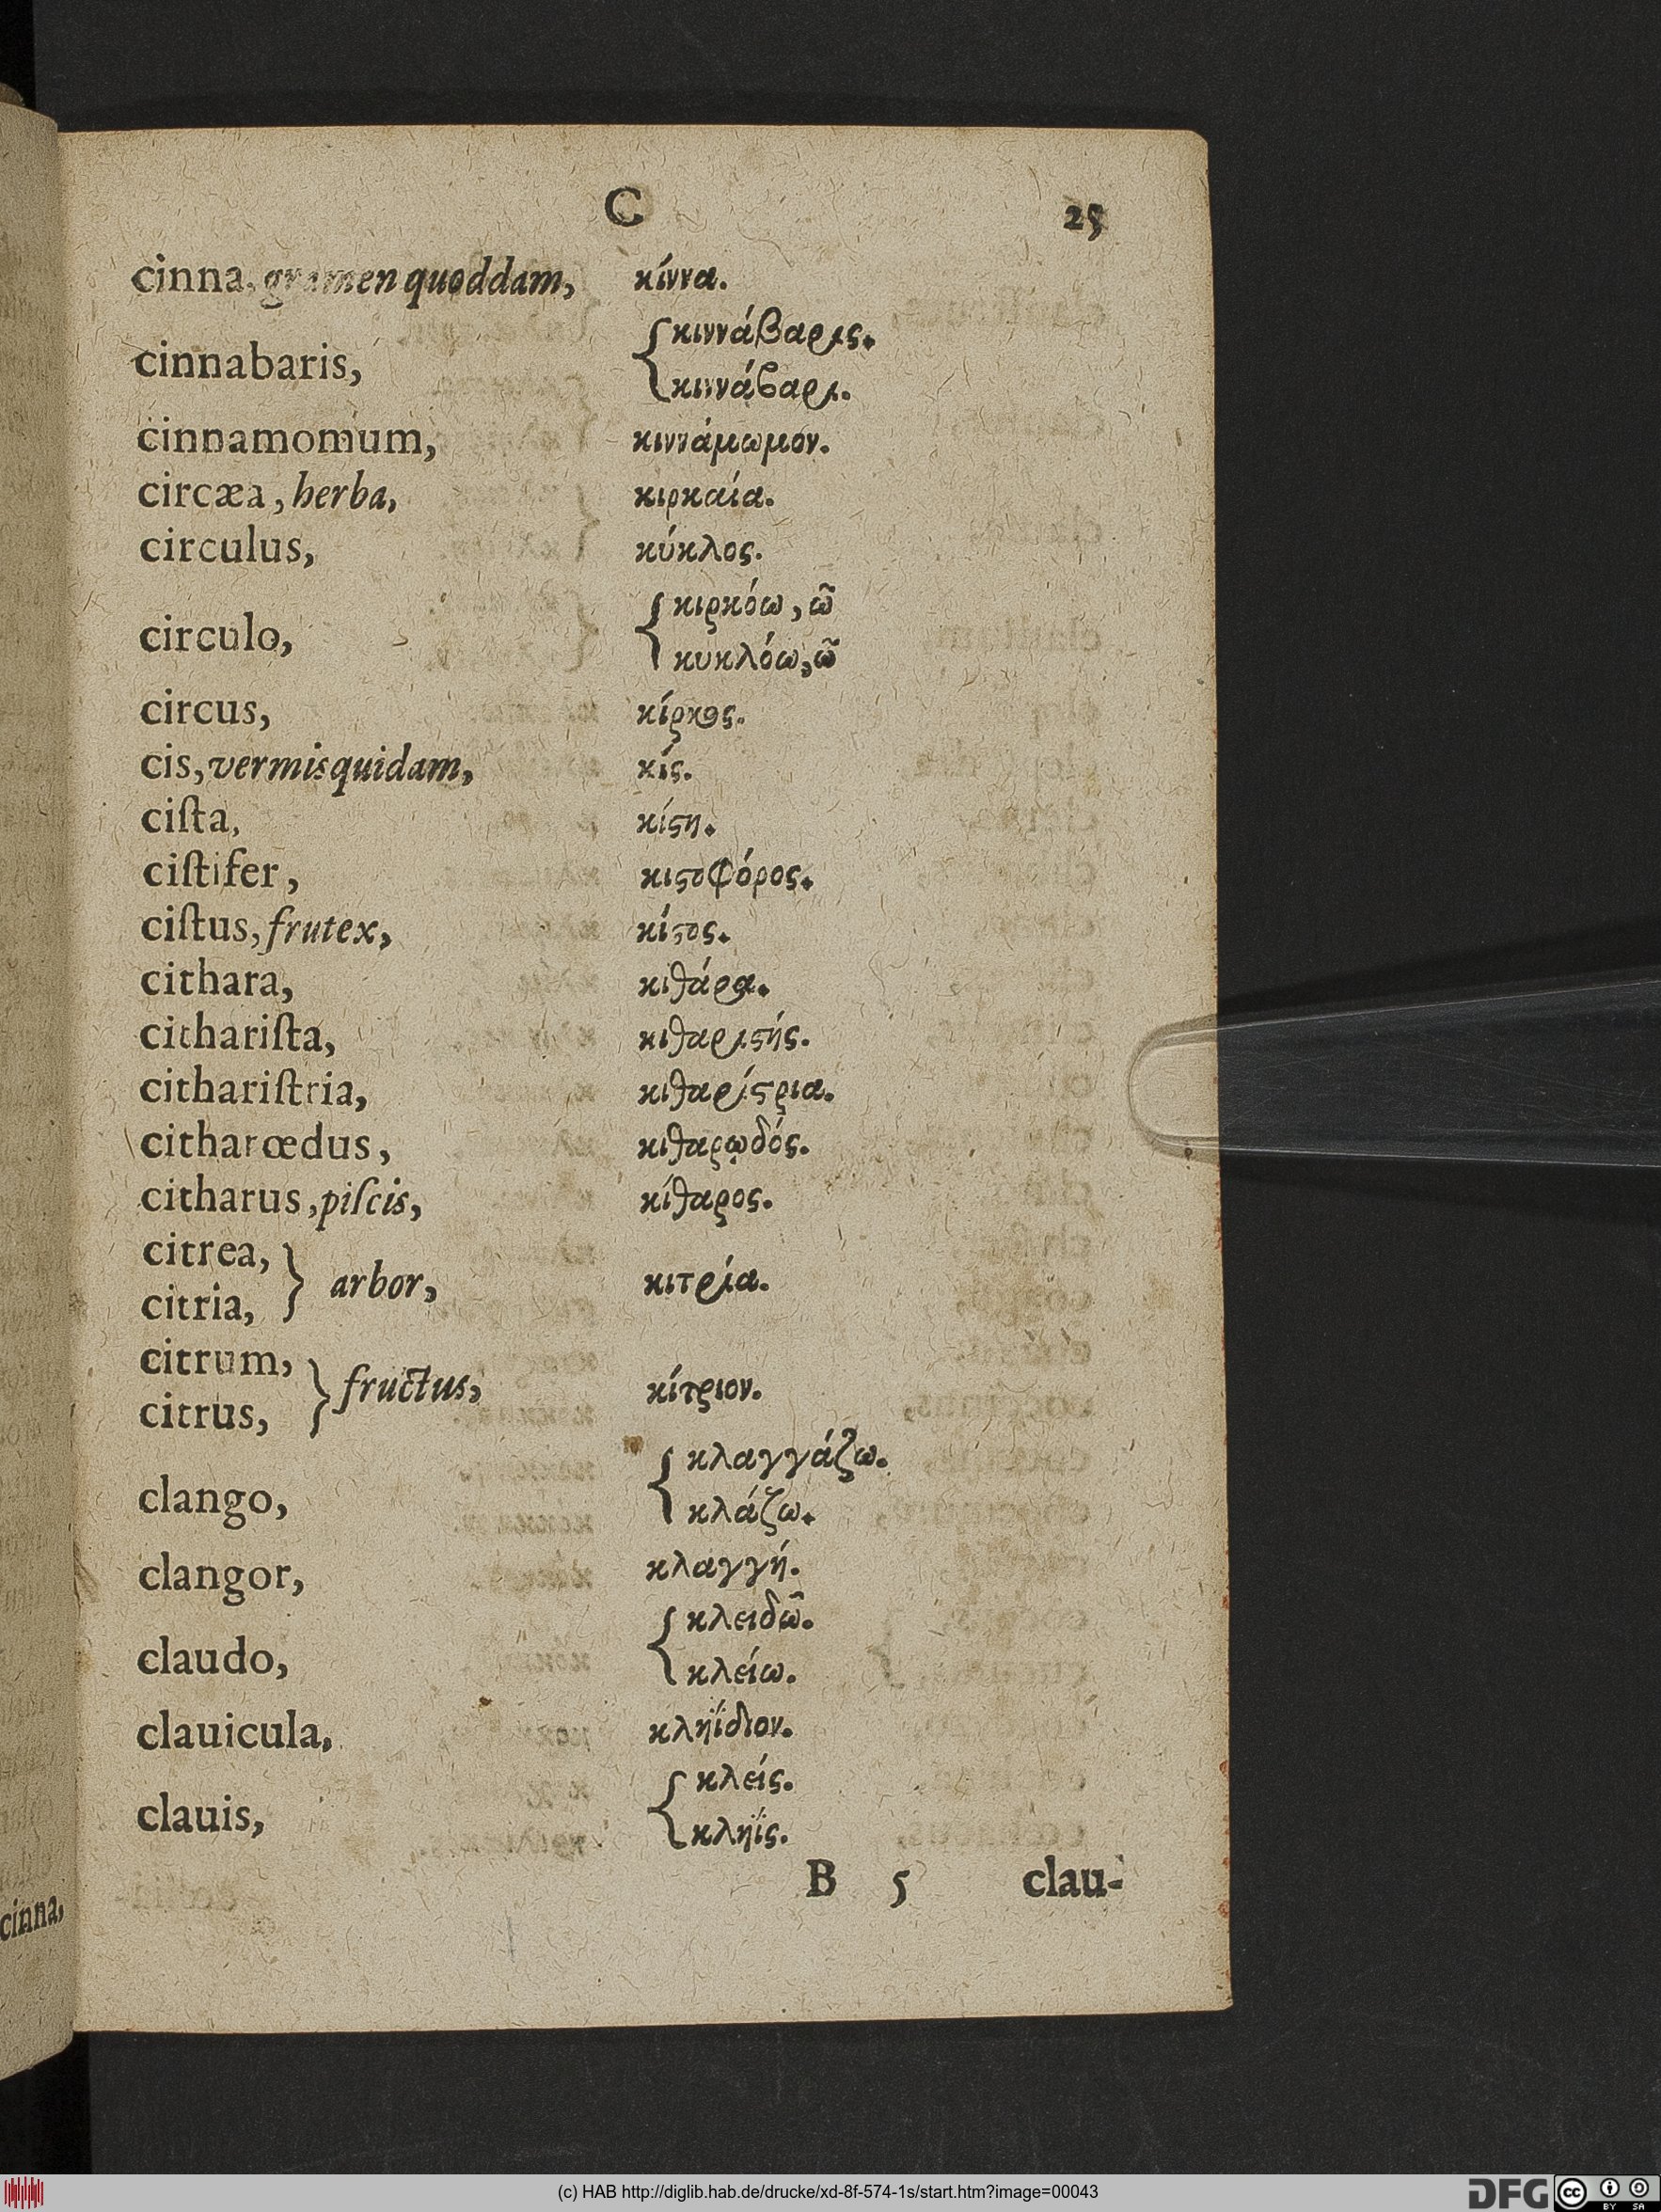 C 25
cinna, gramen quoddam, κίννα.
cinnabaris, {κιννάβαρις.
κιννάβαρι.
cinnamomum, κιννάμωμον.
circæa, herba, κιρκαία.
circulus, κύκλος.
circulo, {κιρκόω, ῶ
κυκλόω, ῶ
circus, κίρκος.
cis, vermis quidam, κίς.
ciſta, κίϛη.
ciſtifer, κιϛοφόρος.
ciſtus, frutex, κίϛος.
cithara, κιθάρα.
cithariſta, κιθαριϛής.
cithariſtria, κιθαρίϛρια.
citharœdus, κιθαρῳδός.
citharus, piſcis, κίθαρος.
citrea,
citria, } arbor, κιτρία.
citrum,
citrus, } fructus, κίτριον.
clango, {κλαγγάζω.
κλάζω.
clangor, κλαγγή.
claudo, {κλειδῶ.
κλείω.
clauicula, κληΐδιον.
clauis, {κλείς.
κληΐς.
B 5 clau-
cinna,
(c) HAB http://diglib.hab.de/drucke/xd-8f-574-1s/start.htm?image=00043
DFG cc BY SA